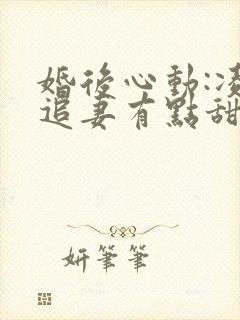 婚後心動:凌
追妻有點甜
妍筆筆